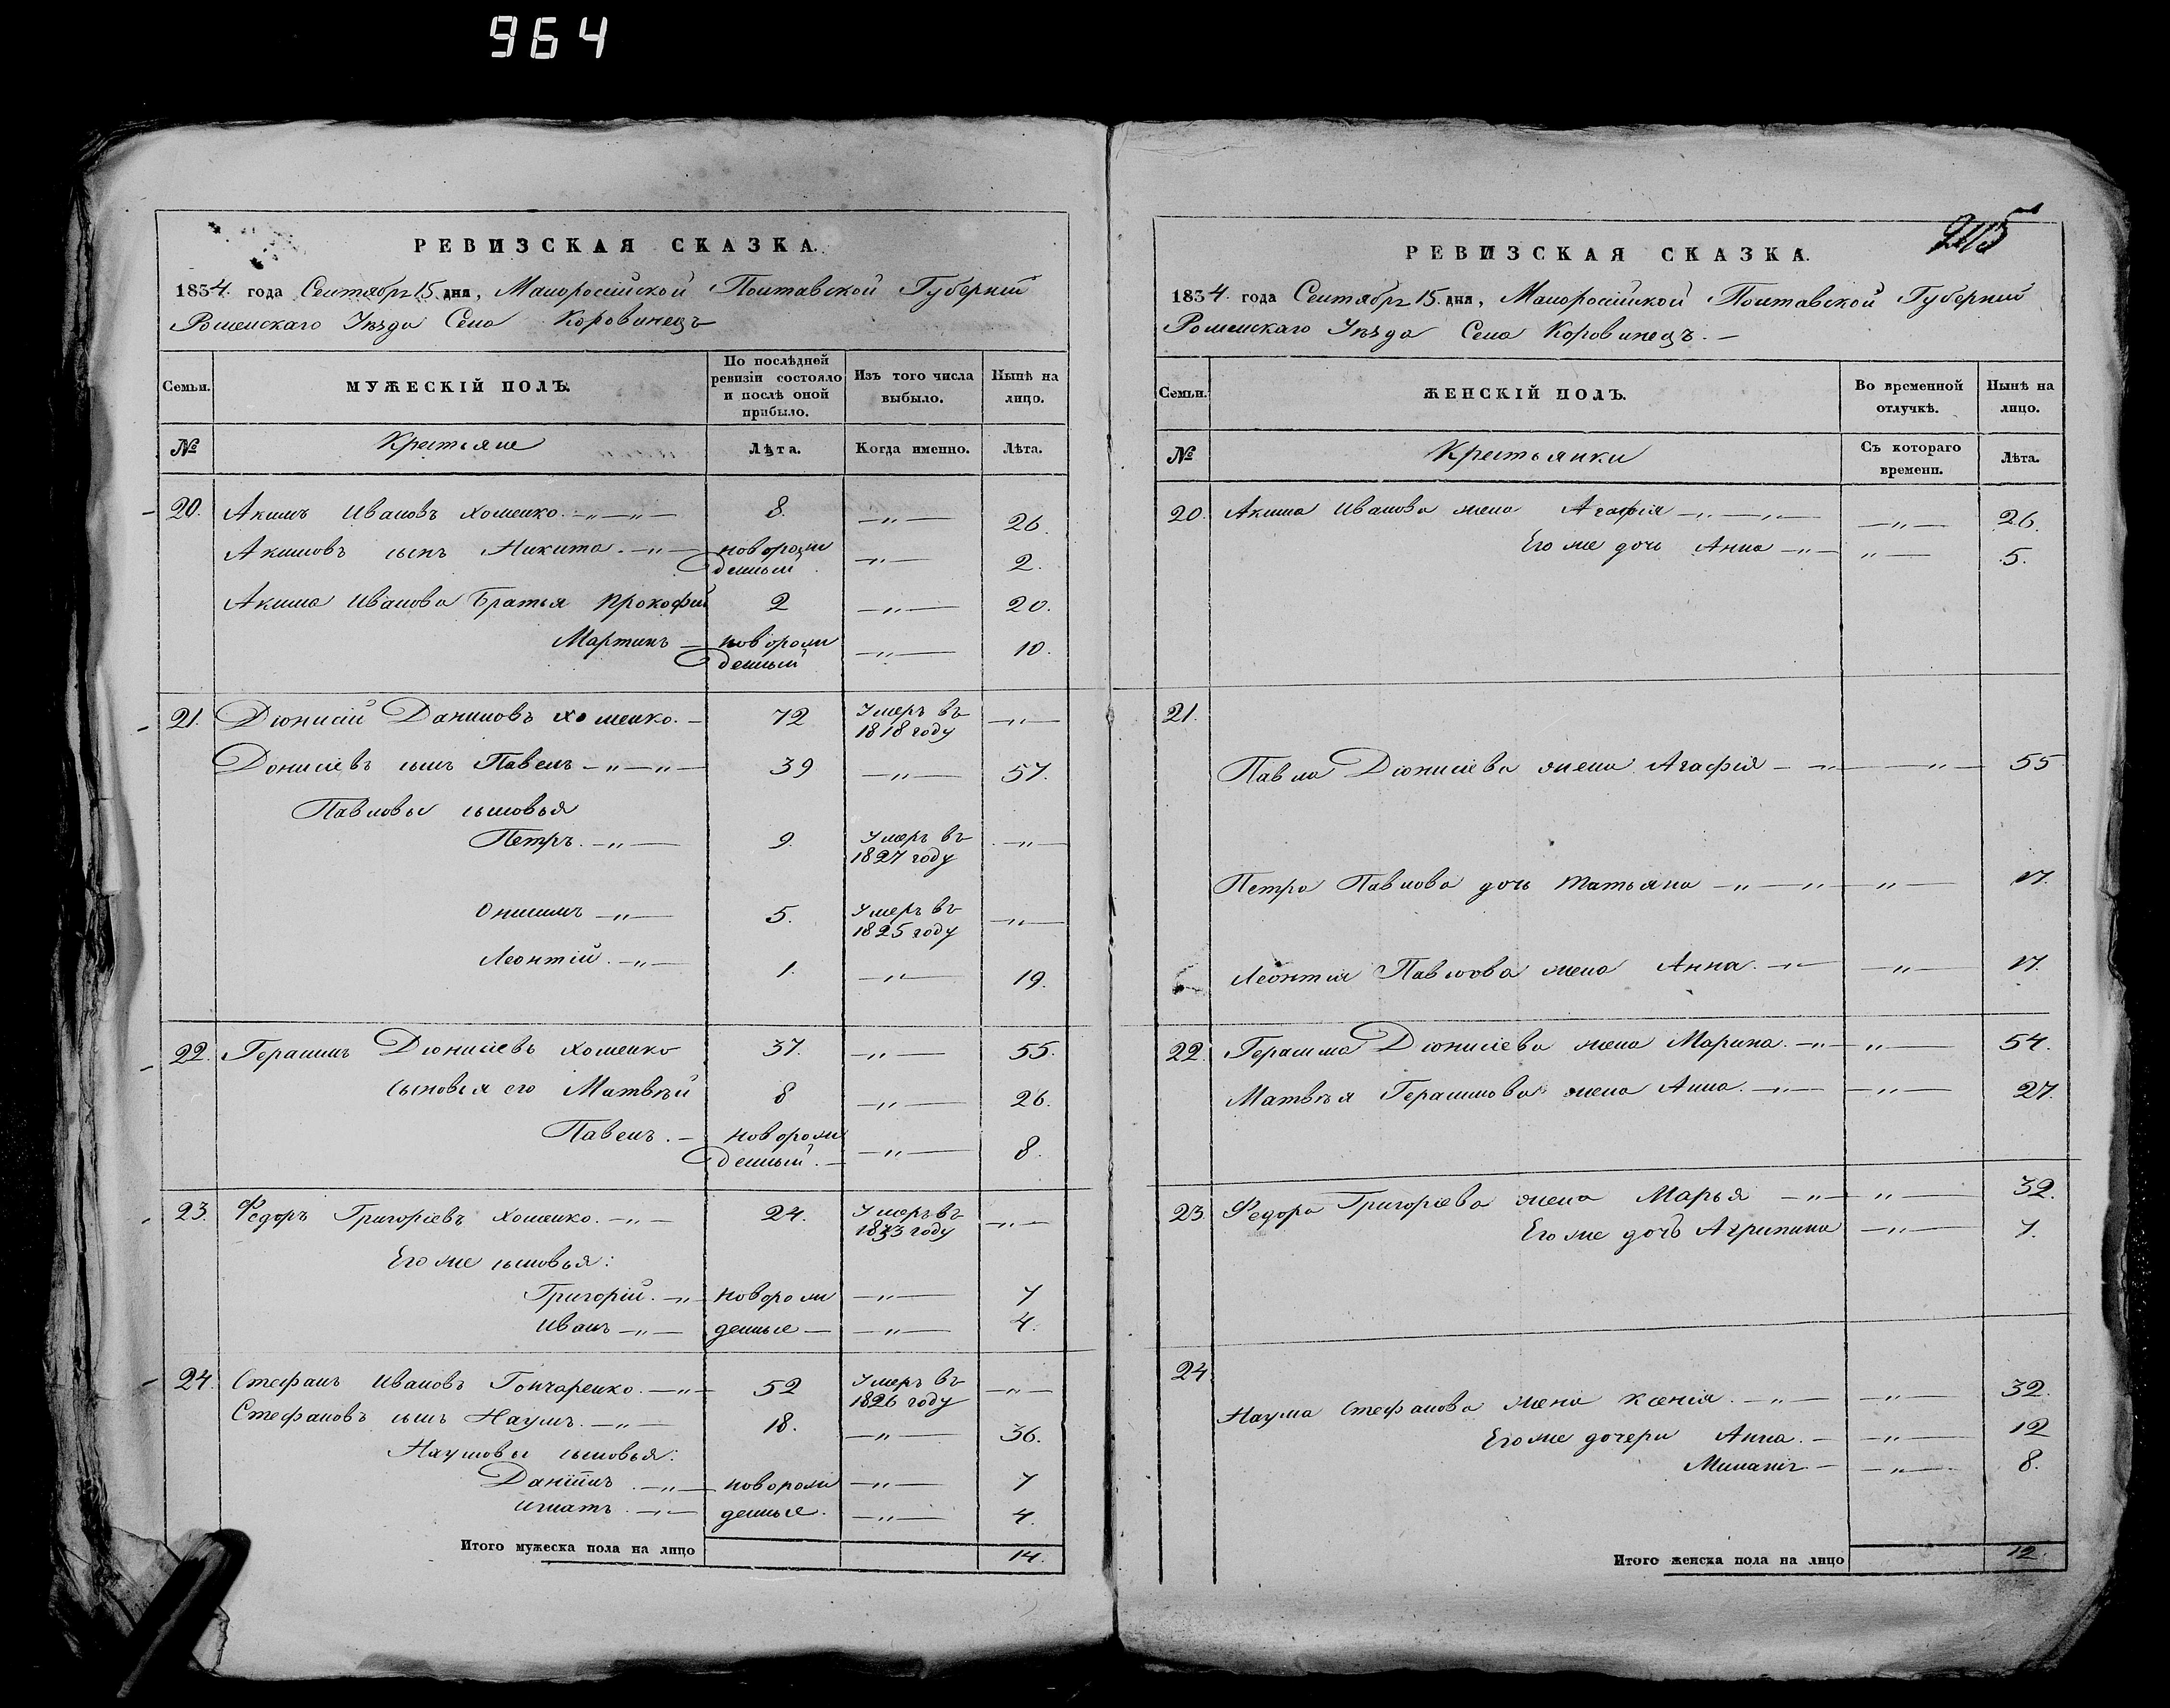 964
РЕВИЗСКАЯ СКАЗКА.
1834. года Сентября 15. дня, Малоросiйской Полтавской Губернiи
Роменскаго Уѣзда Села Коровинецъ
Семьи.
МУЖЕСКІЙ ПОЛЪ.
По послѣдней ревизіи состояло и послѣ оной прибыло.
Изъ того числа выбыло.
Нынѣ на лицо.
№
Крестьяне
Лѣта.
Когда именно.
Лѣта.
20. Акимъ Ивановъ Хоменко. —„—„— 8. —„— 26.
Акимовъ сынъ Никита. —„— новорожденный —„— 2.
Акима Иванова Братья Прокофiй 2 —„— 20.
Мартинъ — новорожденный —„— 10.
21. Дiонисiй Даниловъ Хоменко. — 72 Умеръ въ 1818 году —„—
Донисiевъ сынъ Павелъ —„—„— 39 —„— 57.
Павловы сыновья
Петръ. —„— 9. Умеръ въ 1827 году —„—
Онисимъ —„— 5. Умеръ въ 1825 году —„—
Леонтiй. —„— 1. —„— 19.
22. Герасимъ Дiонисiевъ Хоменко 37. —„— 55.
Сыновья его Матвѣй 8 —„— 26.
Павелъ. — новорожденный. — —„— 8.
23. Федоръ Григорiевъ Хоменко. —„— 24. Умеръ въ 1833 году —„—
Его же сыновья:
Григорiй. —„— новорож —„— 7
Иванъ —„— денные — —„— 4.
24. Стефанъ Ивановъ Гончаренко. —„— 52 Умеръ въ 1826 году —„—
Стефановъ сынъ Наумъ. —„— 18. —„— 36.
Наумовы сыновья:
Данiилъ. —„— новорож —„— 7
Игнатъ. —„— денные. —„— 4.
Итого мужеска пола на лицо 14.
215
РЕВИЗСКАЯ СКАЗКА.
1834. года Сентября 15. дня, Малоросiйской Полтавской Губернiи
Роменскаго Уѣзда Села Коровинецъ. —
Семьи.
ЖЕНСКІЙ ПОЛЪ.
Во временной отлучкѣ.
Нынѣ на лицо.
№
Крестьянки
Съ котораго времени.
Лѣта.
20. Акима Иванова жена Агафiя —„—„— —„— 26.
Его же дочь Анна —„— „— 5.
21.
Павла Дiонисiева жена Агафiя — —„— —„— 55
Петра Павлова дочь Татьяна —„—„— „— 17.
Леонтiя Павлова жена Анна. —„— —„— 17.
22. Герасима Дiонисiева жена Марина. —„— „— 54.
Матвѣя Герасимова жена Анна. —„— —„— 27.
23. Федора Григорiева жена Марья —„— „— 32.
Его же дочь Агрипина —„— 7.
24
Наума Стефанова жена Ксенiя. —„— —„— 32.
Его же дочери Анна. — —„— 12
Миланiя — —„— 8.
Итого женска пола на лицо 12.